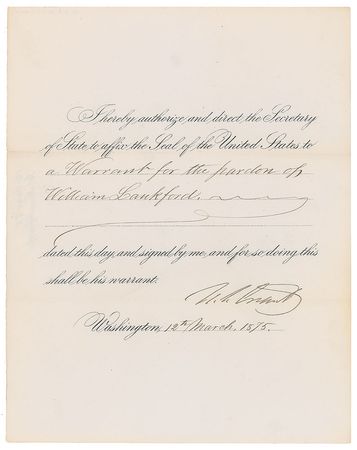 I hereby authorize and direct the Secretary
of State to affix the Seal of the United States to
a Warrant for the pardon of
William Lankford.
dated this day, and signed by me, and for so doing this
shall be his warrant.
U.S. Grant
Washington, 12th March, 1875.